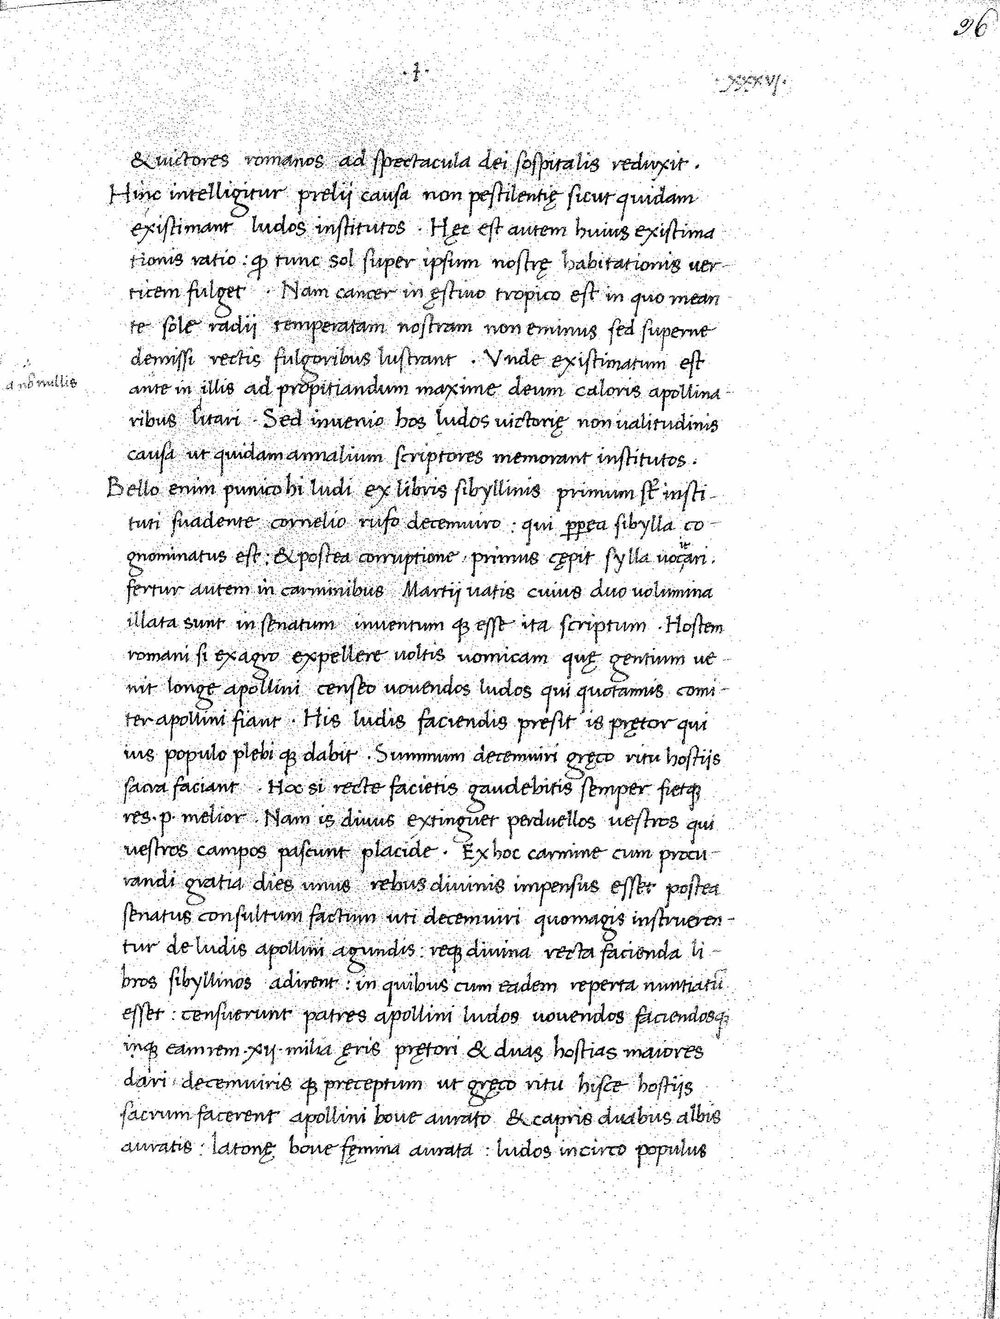 96
·1·
·xxxvj·
& uictores romanos ad spectacula dei sospitalis reduxit .
Hinc intelligitur prelij causa non pestilentię sicut quidam
existimant ludos institutos . Hęc est autem huius existima
tionis ratio : ꝙ tunc sol super ipsum nostrę habitationis uer-
ticem fulget . Nam cancer in ęstiuo tropico est in quo mean
te sole radij temperatam nostram non eminus sed superne
demissi rectis fulgoribus lustrant . Vnde existimatum est
a nōnullis
ante in illis ad propitiandum maxime deum caloris apollina-
ribus litari . Sed inuenio hos ludos uictorię non ualitudinis
causa ut quidam annalium scriptores memorant institutos .
Bello enim punico hi ludi ex libris sibyllinis primum st̄ insti-
tuti suadente cornelio rufo decemuiro : qui ꝓꝑea sibylla co-
gnominatus est : & postea corruptione primus cępit sylla uocari .
fertur autem in carminibus Martij uatis cuius duo uolumina
illata sunt in senatum inuentum qꝫ esse ita scriptum . Hostem
romani si ex agro expellere uoltis uomicam quę gentium ue-
nit longe apollini censeo uouendos ludos qui quotannis comi-
ter apollini fiant . His ludis faciendis presit is prętor qui
ius populo plebi qꝫ dabit . Summum decemuiri gręco ritu hostijs
sacra faciant . Hoc si recte facietis gaudebitis semper fietqꝫ
res . p . melior . Nam is diuus extinguet perduellos uestros qui
uestros campos pascunt placide . Ex hoc carmine cum procu-
randi gratia dies unus rebus diuinis impensus esset postea
senatus consultum factum uti decemuiri quomagis instrueren-
tur de ludis apollini agundis : reqꝫ diuina recta facienda li-
bros sibyllinos adirent : in quibus cum eadem reperta nuntiatū
esset : censuerunt patres apollini ludos uouendos faciendosqꝫ
inqꝫ eam rem . xij . milia ęris prętori & duas hostias maiores
dari decemuiris qꝫ preceptum ut gręco ritu hisce hostijs
sacrum facerent apollini boue aurato & capris duabus albis
auratis : latonę boue fęmina aurata : ludos in circo populus